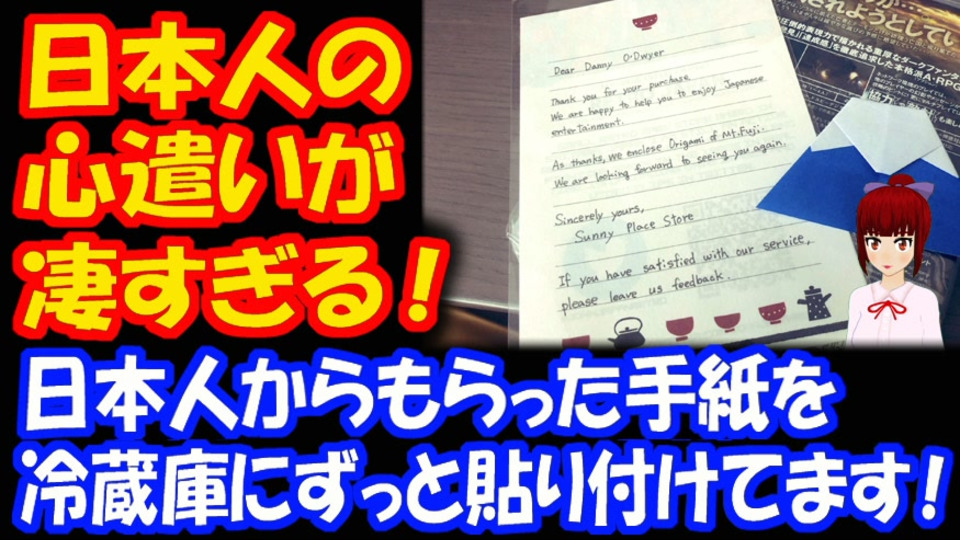 日本人の
心遣いが
凄すぎる!
Dear Danny O'Dwyer
Thank you for your purchase
We are happy to help you to enjoy Japanese
entertainment.
As thanks, we enclose Origami of Mt.Fuji.
We are looking forward to seeing you again.
Sincerely yours,
Sunny Place Store
If you have satisfied with our service,
please leave us feedback.
されようとしてい
圧倒的表現力で描かれる重厚なダークファンタ
「達成感」を徹底追求した本格派A・RPG
日本人からもらった手紙を
冷蔵庫にずっと貼り付けてます!